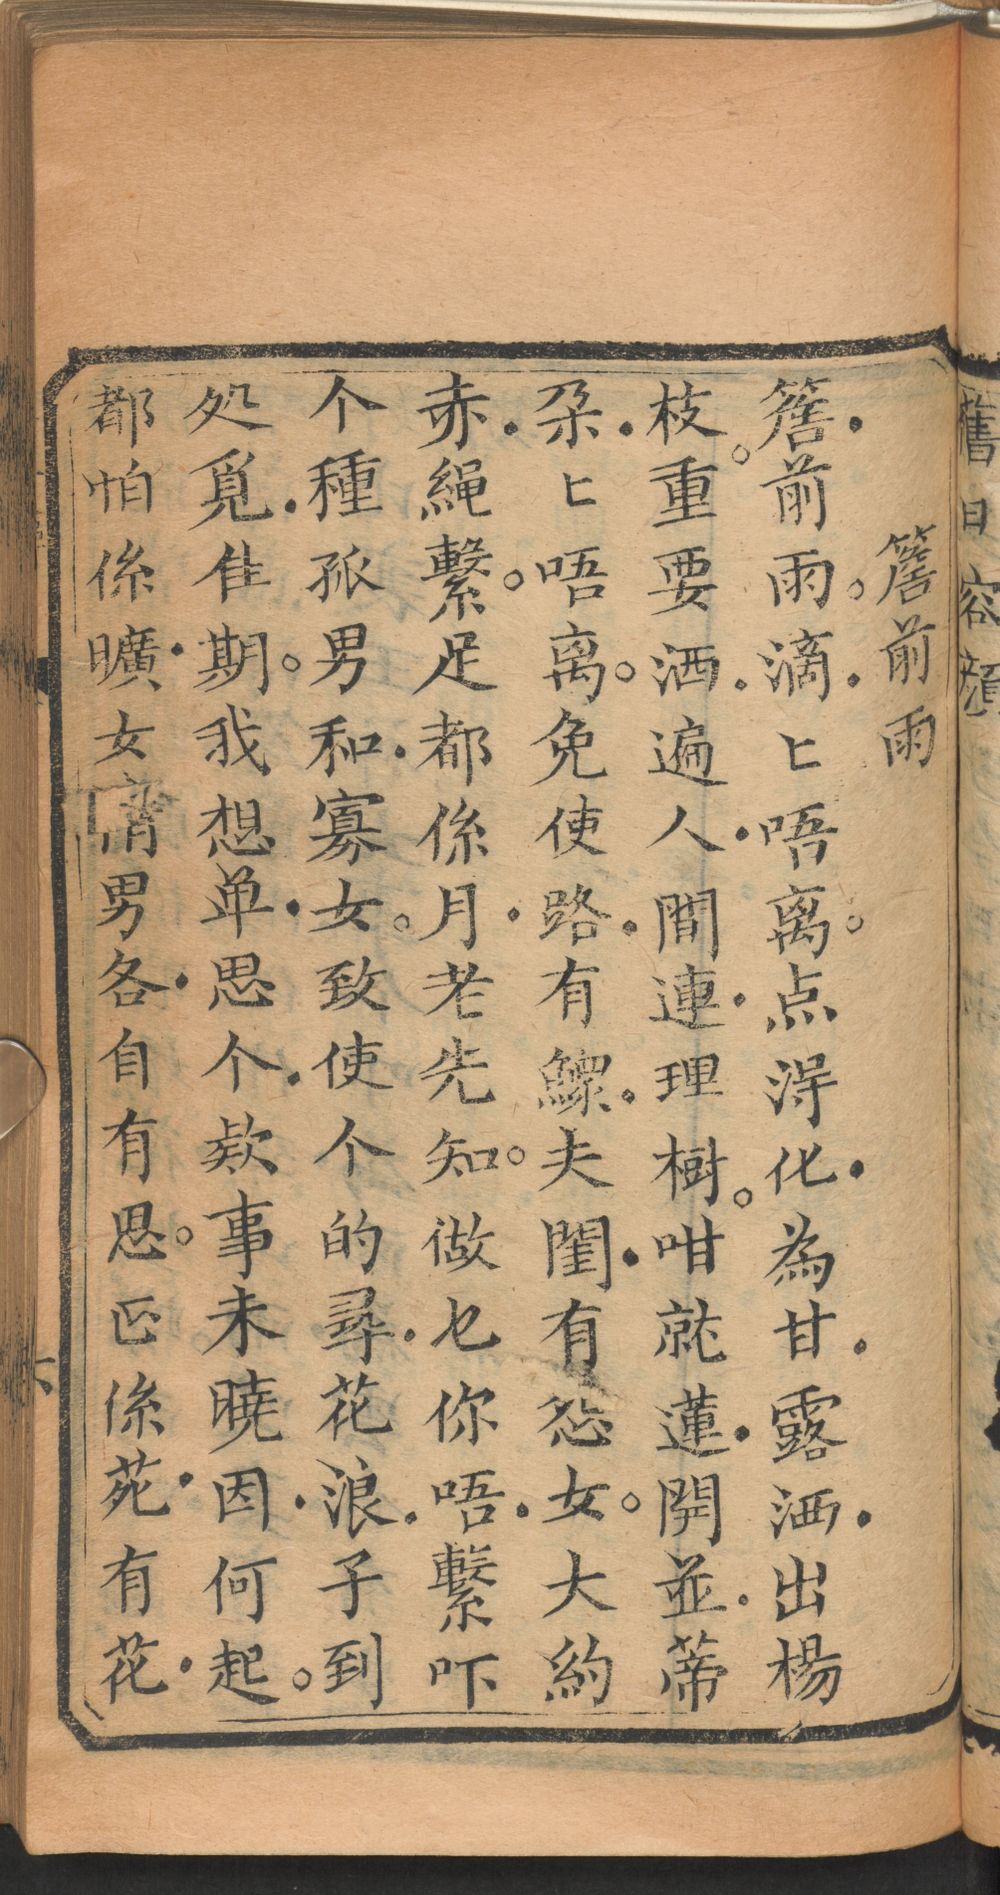 舊日容顏
簷前雨
簷前雨。滴匕唔离。点淂化為甘露洒出楊
枝。重要洒遍人間連理樹。咁就蓮開並蒂
朶匕唔离。免使路有鰥夫閨有怨女。大約
赤繩繫。足都係月老先知。做乜你唔繫吓
个種孤男和寡女。致使个的尋花浪子到
处覓佳期。我想单思个欵事未曉因何起。
都怕係曠女 男各自有思。正係苑有花
六